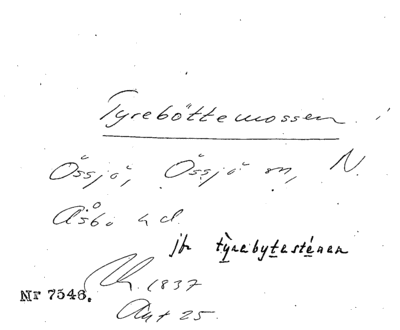 Tyreböttemossen i
Össjö, Össjö sn, N.
Åsbo hd.
jfr tyrebytesténen
1837
Nr 7546.
Akt 25.